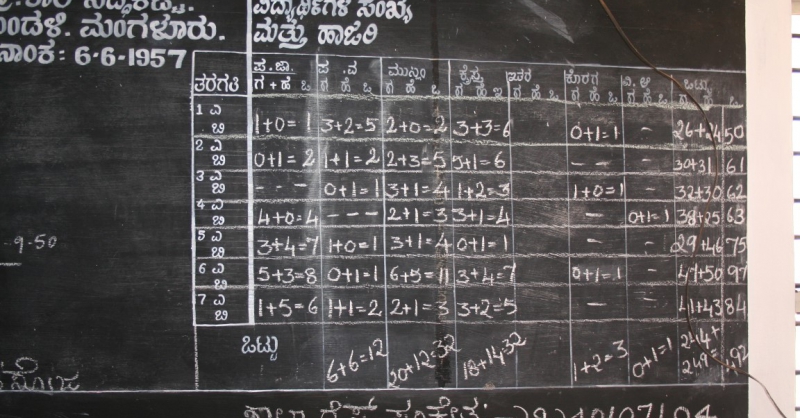 ಮಂಡಳಿ. ಮಂಗಳೂರು.
ನಾಂಕ: 6-6-1957
ವಿದ್ಯಾರ್ಥಿಗಳ ಸಂಖ್ಯೆ
ಮತ್ತು ಹಾಜರಿ
ತರಗತಿ ಪ.ಜಾ. ಪ.ವ ಮುಸ್ಲಿಂ ಕ್ರೈಸ್ತ ಇತರ ಕೊರಗ ವಿ. ಚೇ ಒಟ್ಟು
ಗ + ಹೆ ಒ ಗ ಹೆ ಒ ಗ ಹೆ ಒ ಗ ಹೆ ಒ ಗ ಹೆ ಒ ಗ ಹೆ ಒ ಗ ಹೆ ಒ ಗ ಹೆ ಒ
1 ಎ
ಬಿ 1+0=1 3+2=5 2+0=2 3+3=6 0+1=1 - 26+24 50
2 ಎ
ಬಿ 0+1=2 1+1=2 2+3=5 5+1=6 - - 30+31 61
3 ಎ
ಬಿ - - - 0+1=1 3+1=4 1+2=3 1+0=1 32+30 62
4 ಎ
ಬಿ 4+0=4 - - - 2+1=3 3+1=4 - 0+1=1 38+25 63
-9-50
5 ಎ
ಬಿ 3+4=7 1+0=1 3+1=4 0+1=1 - 29+46 75
6 ಎ
ಬಿ 5+3=8 0+1=1 6+5=11 3+4=7 0+1=1 47+50 97
7 ಎ
ಬಿ 1+5=6 1+1=2 2+1=3 3+2=5 - 41+43 84
ಒಟ್ಟು 6+6=12 20+12=32 18+14=32 1+2=3 0+1=1 244+
249